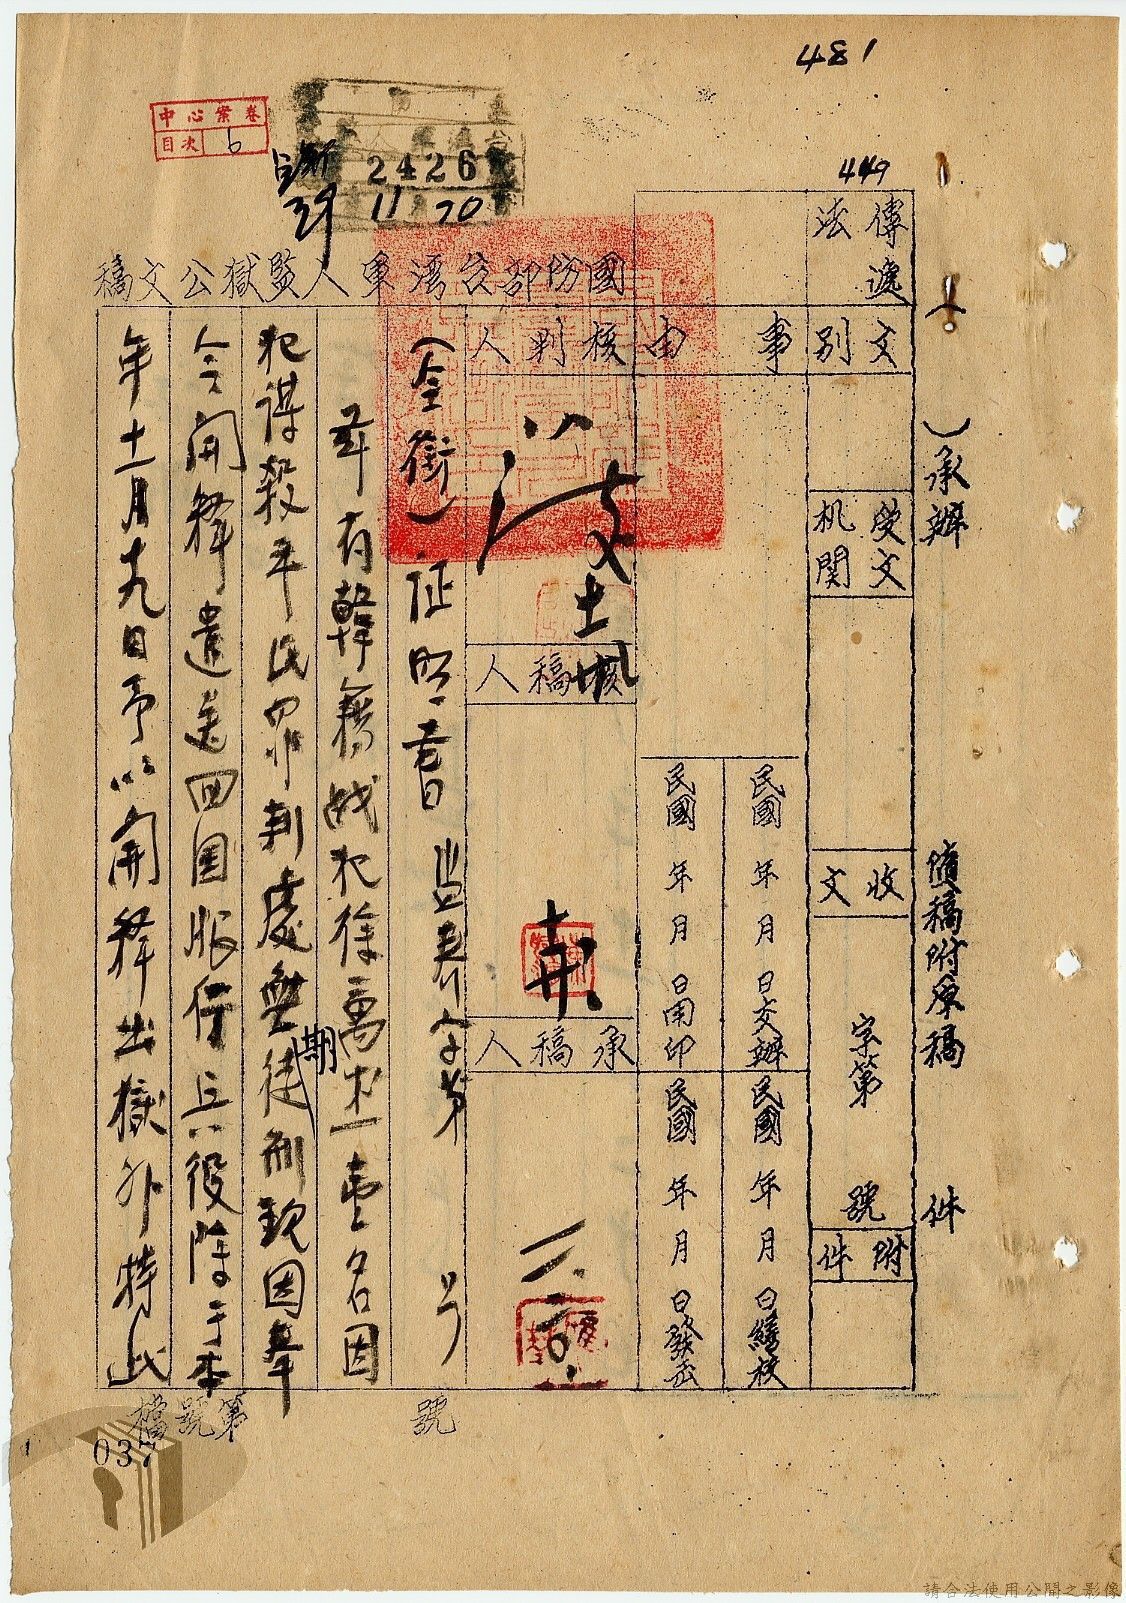 481
中心案卷
目次 6
2426
39 11 20
449
國防部台灣軍人監獄公文稿
傳遞法
文別
事由
核判人
受文機關
收文 字第 號
附件
民國 年 月 日交辦
民國 年 月 日繕校
民國 年 月 日用印
民國 年 月 日發出
核稿人
承稿人
承辦
隨稿附原稿 件
(全銜)証明書 監 字第 號
茲有韓籍戰犯徐萬 壹名因
犯謀殺平民罪判處無期徒刑現因奉
令開釋遣送回國服行兵役除于本
年十一月十九日予以開釋出獄外特此
檔號第 號
037
請合法使用公開之影像